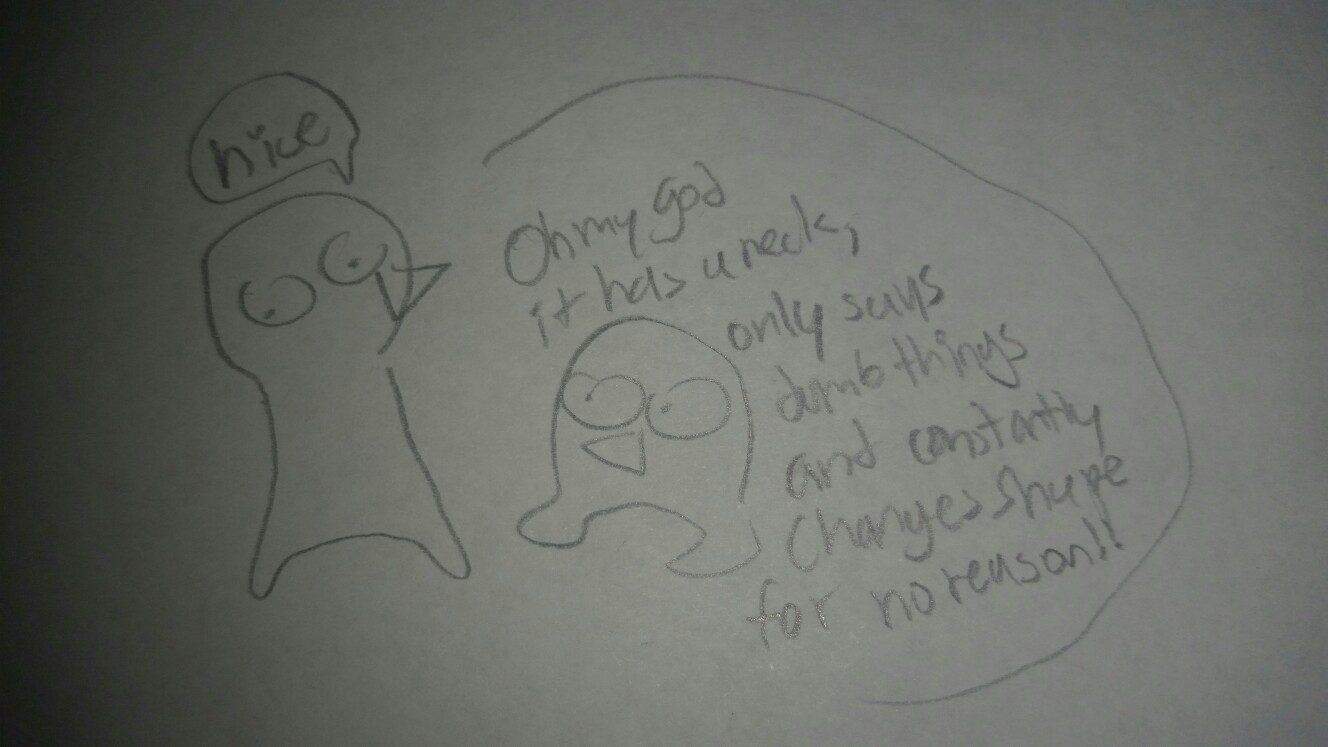 nice
Oh my god
it has a neck,
only says
dumb things
and constantly
changes shape
for no reason!!